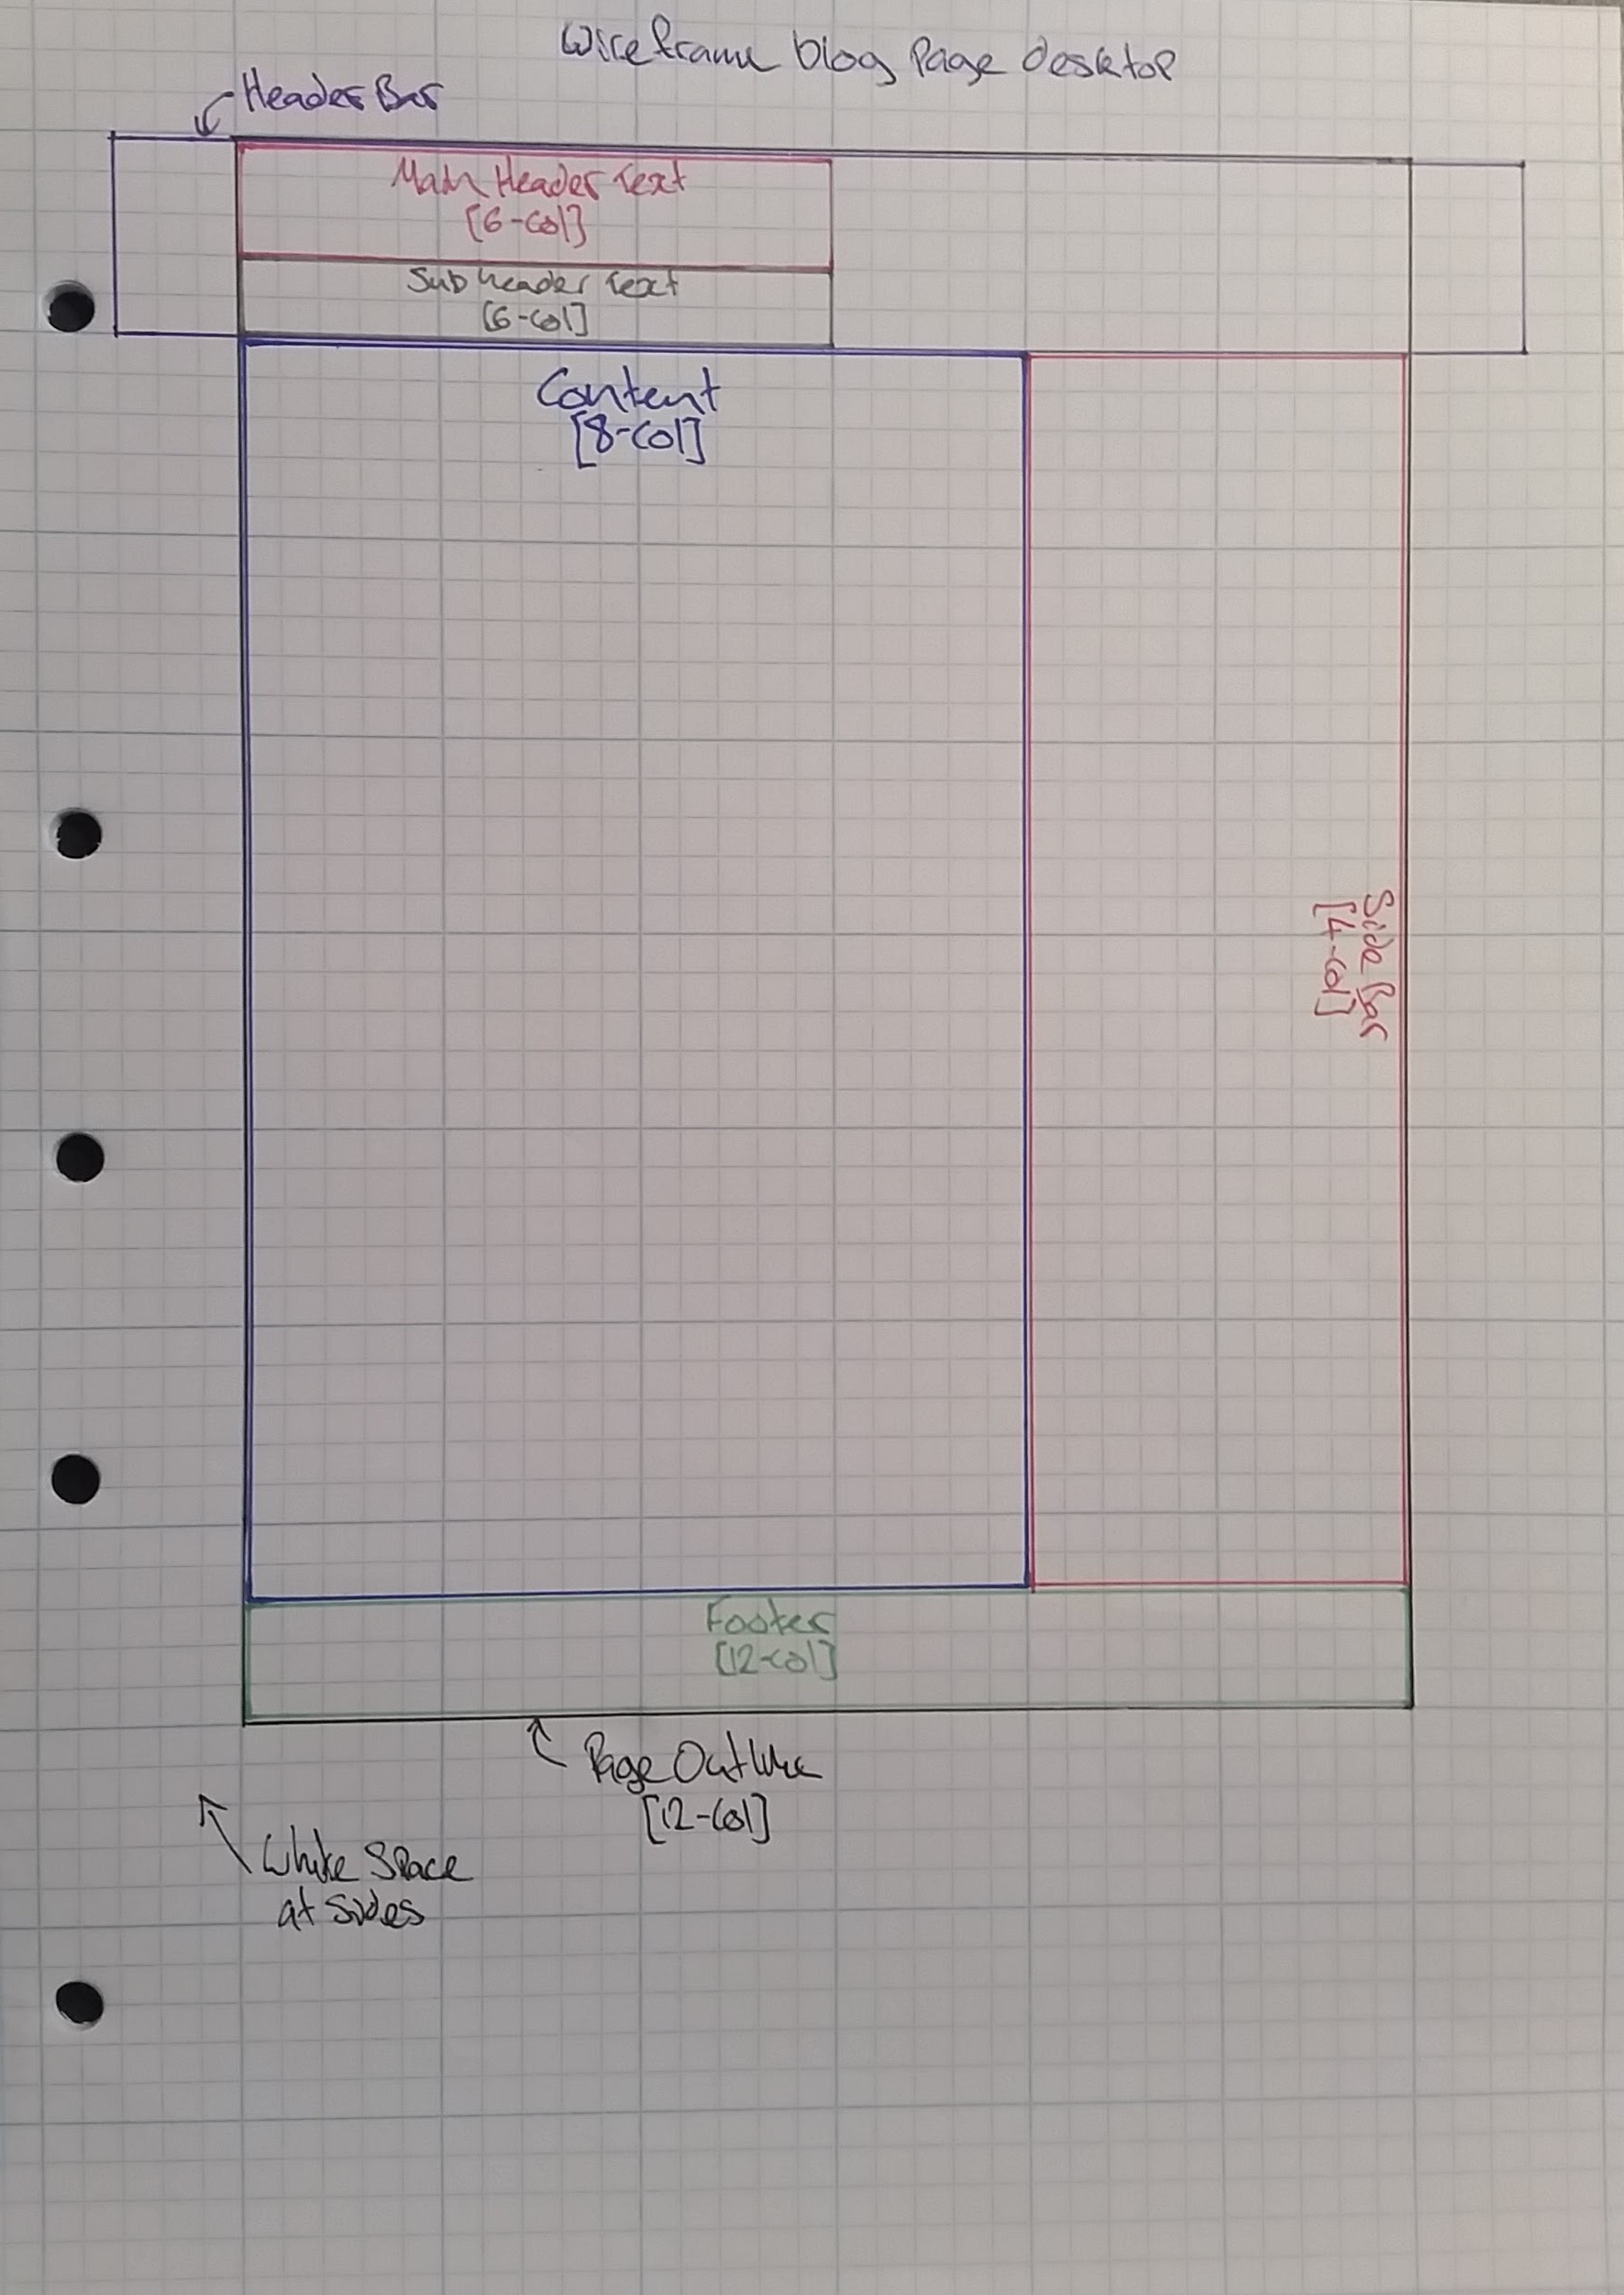 Wireframe blog Page desktop
Header Bar
Main Header Text
[6-Col]
Sub header Text
[6-Col]
Content
[8-Col]
Side Bar
[4-Col]
Footer
[12-Col]
Page Outline
[12-Col]
White Space
at Sides